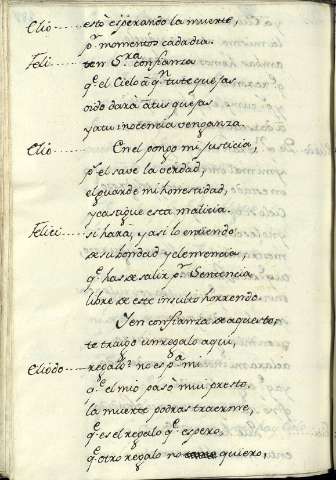 Clio.... està esperando la muerte
pr momentos cada dia.
Feli.... ten Sra confianza
qe el Cielo à qn tu te quejas
oido darà à tus quejas
y a tu inocencia venganza.
Clio.... En el pongo mi justicia,
pr el save la verdad,
el guarde mi honrestidad,
y castigue esta malicia.
Felici.. si harà, y asi lo entiendo
de su bondad y clemencia,
qe has de salir pr Sentencia
libre de este insulto horrendo.
Y en confianza de aquesto,
te traigo un regalo aqui,
Cliodo.. regalo? no es pa mi
qe el mio pasò mui presto.
la muerte podras traerme,
qe es el regalo qe espero
qe otro regalo no quiero,